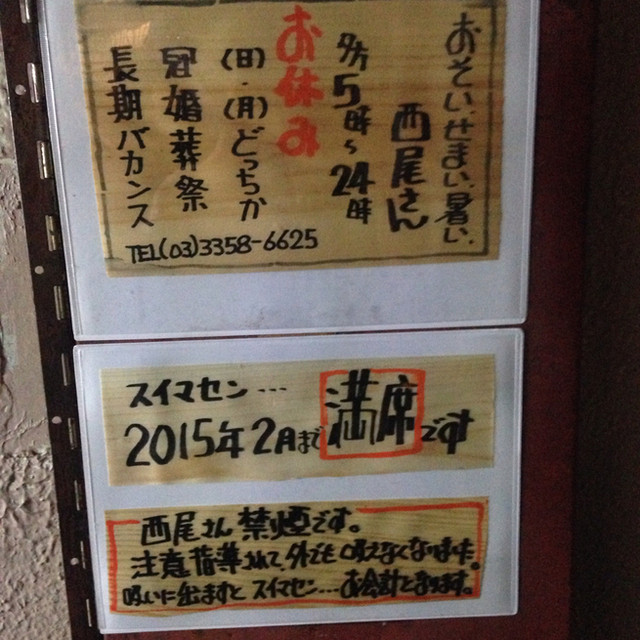 おそい、せまい、暑い、
西尾さん
夕方5時〜24時
お休み
(日)・(月)どっちか
冠婚葬祭
長期バカンス
TEL(03)3358-6625
スイマセン…
2015年2月まで満席です
西尾さん禁煙です。
注意指導されて、外でも吸えなくなりました。
吸いに出ますとスイマセン…お会計となります。